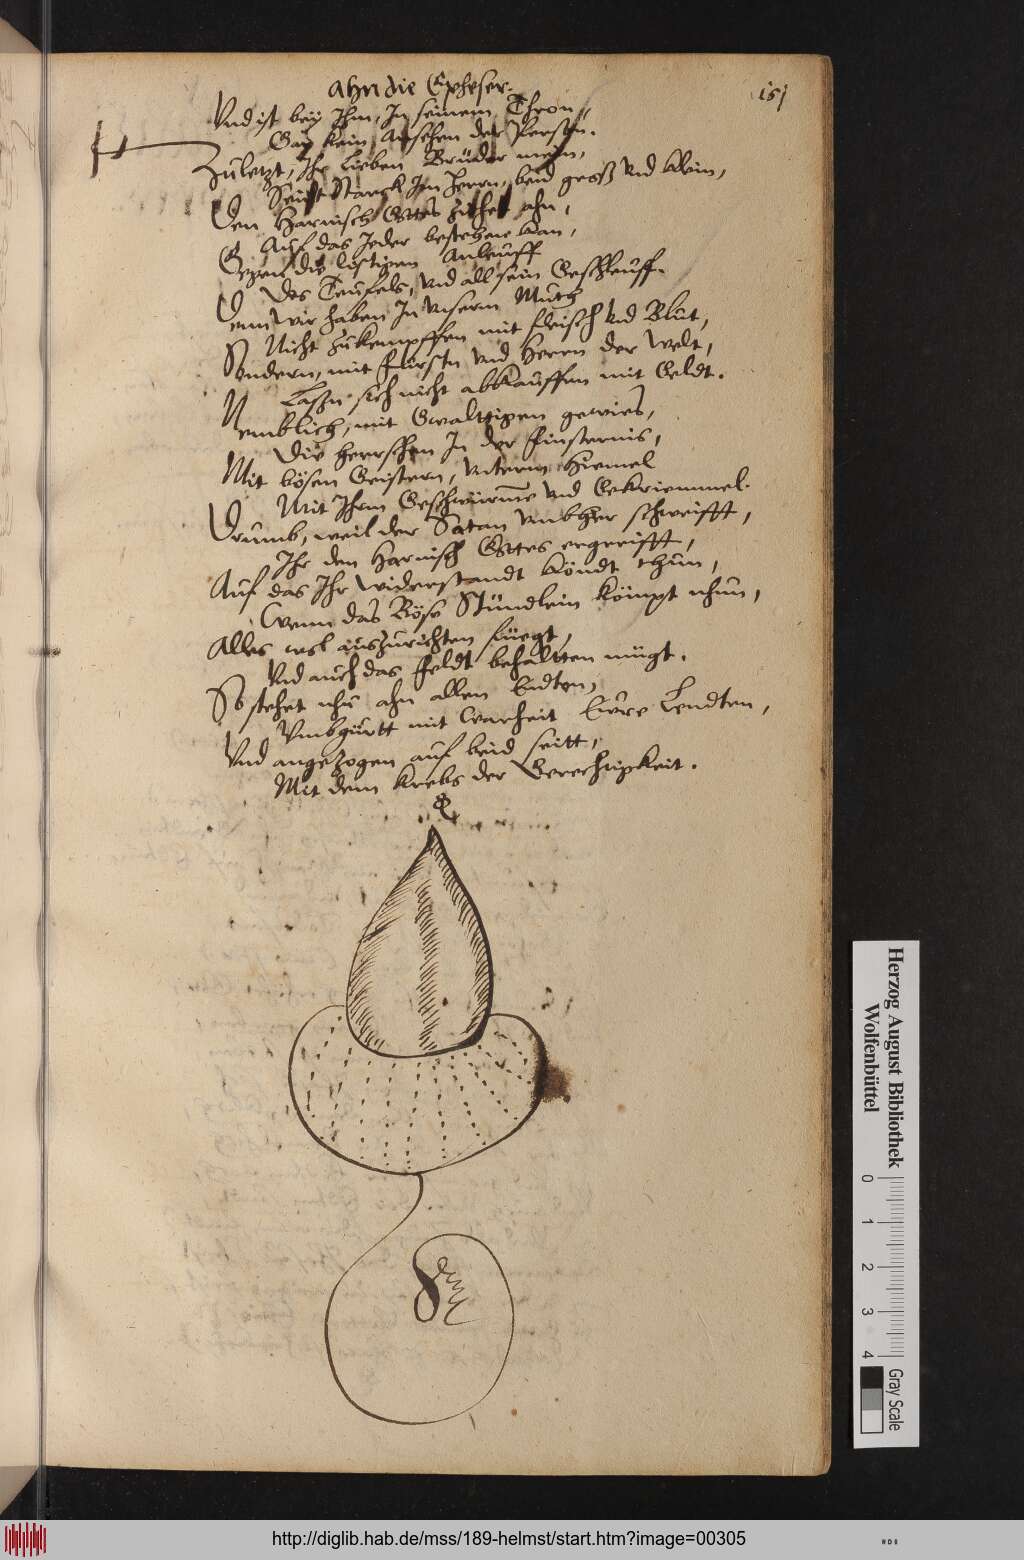 Ahn die Epheser.
151
Vnd ist bey Ihm, In seinem Thron,
Gar kein Ansehen der Person.
Zuletzt, Ihr lieben Brüder mein,
Seidt Starck Im Herrn, beid groß vnd klein,
Den Harnisch Gottes ziehet ahn,
Auf das Jeder bestehen kan,
Gegen die listigen Anleuff
Des Teufels, vnd all sein Geschleuff.
Denn wir haben In vnserm Muth
Nicht zukempffen mit fleisch vnd Blut,
Sondern, mit fürstn vnd Herrn der Welt,
Laßn sich nicht abkauffen mit Geldt.
Nemblich, mit Gwalttigen gewies,
Die herrschen In der finsternis,
Mit bösen Geistern, vnterm Hiemel
Mit Ihrm Geschwürme vnd Gekriemmel.
Drumb, weil der Satan vmbher schweifft,
Ihr den Harnisch Gottes ergreifft,
Auf das Ihr widerstandt köndt thun,
Wenn das Böse Stündlein kömpt nhun,
Alles wol auszurichten füegt,
Vnd auch das feldt behaltten mügt.
So stehet nhu ahn allen Endten,
Vmbgürtt mit Warheit Ewre Lendten,
Vnd angezogen auf beid seitt,
Mit dem Krebs der Gerechtigkeit.
Herzog August Bibliothek
Wolfenbüttel
0 1 2 3 4
Gray Scale
http://diglib.hab.de/mss/189-helmst/start.htm?image=00305